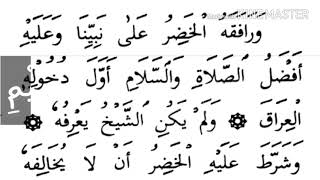 ورافقه الْخَضِرُ عَلَى نَبِيِّنَا وَعَلَيْهِ
أَفْضَلُ الصَّلَاةِ وَالسَّلَامِ أَوَّلَ دُخُولِهِ
الْعِرَاقَ ۞ وَلَمْ يَكُنِ الشَّيْخُ يَعْرِفُهُ ۞
وَشَرَطَ عَلَيْهِ الْخَضِرُ أَنْ لَا يُخَالِفَهُ